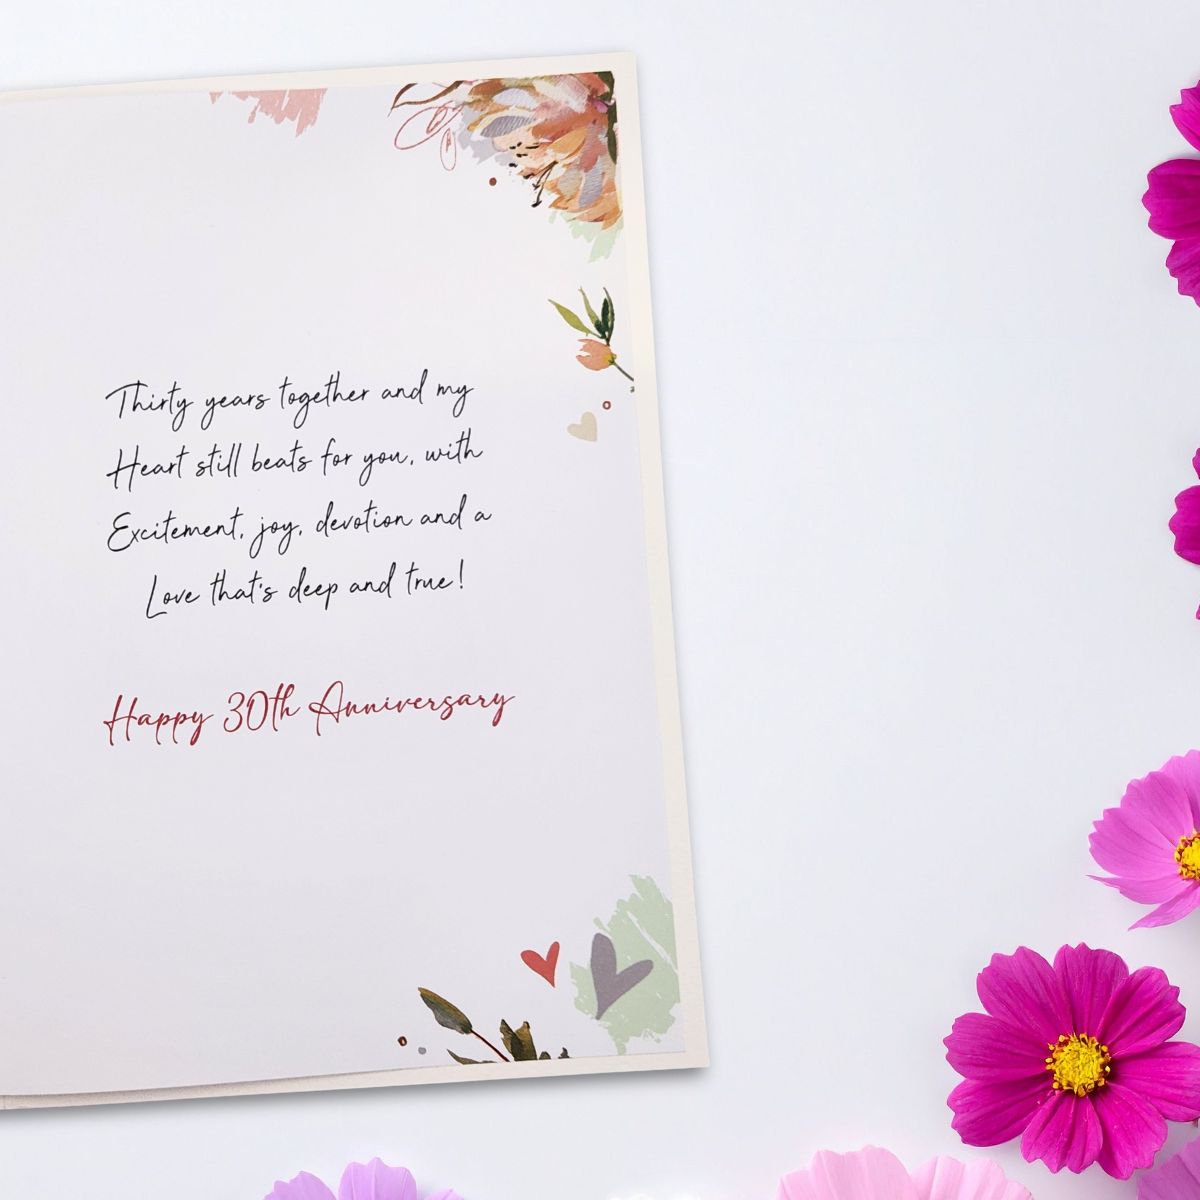 Thirty years together and my
Heart still beats for you, with
Excitement, joy, devotion and a
Love that's deep and true!
Happy 30th Anniversary